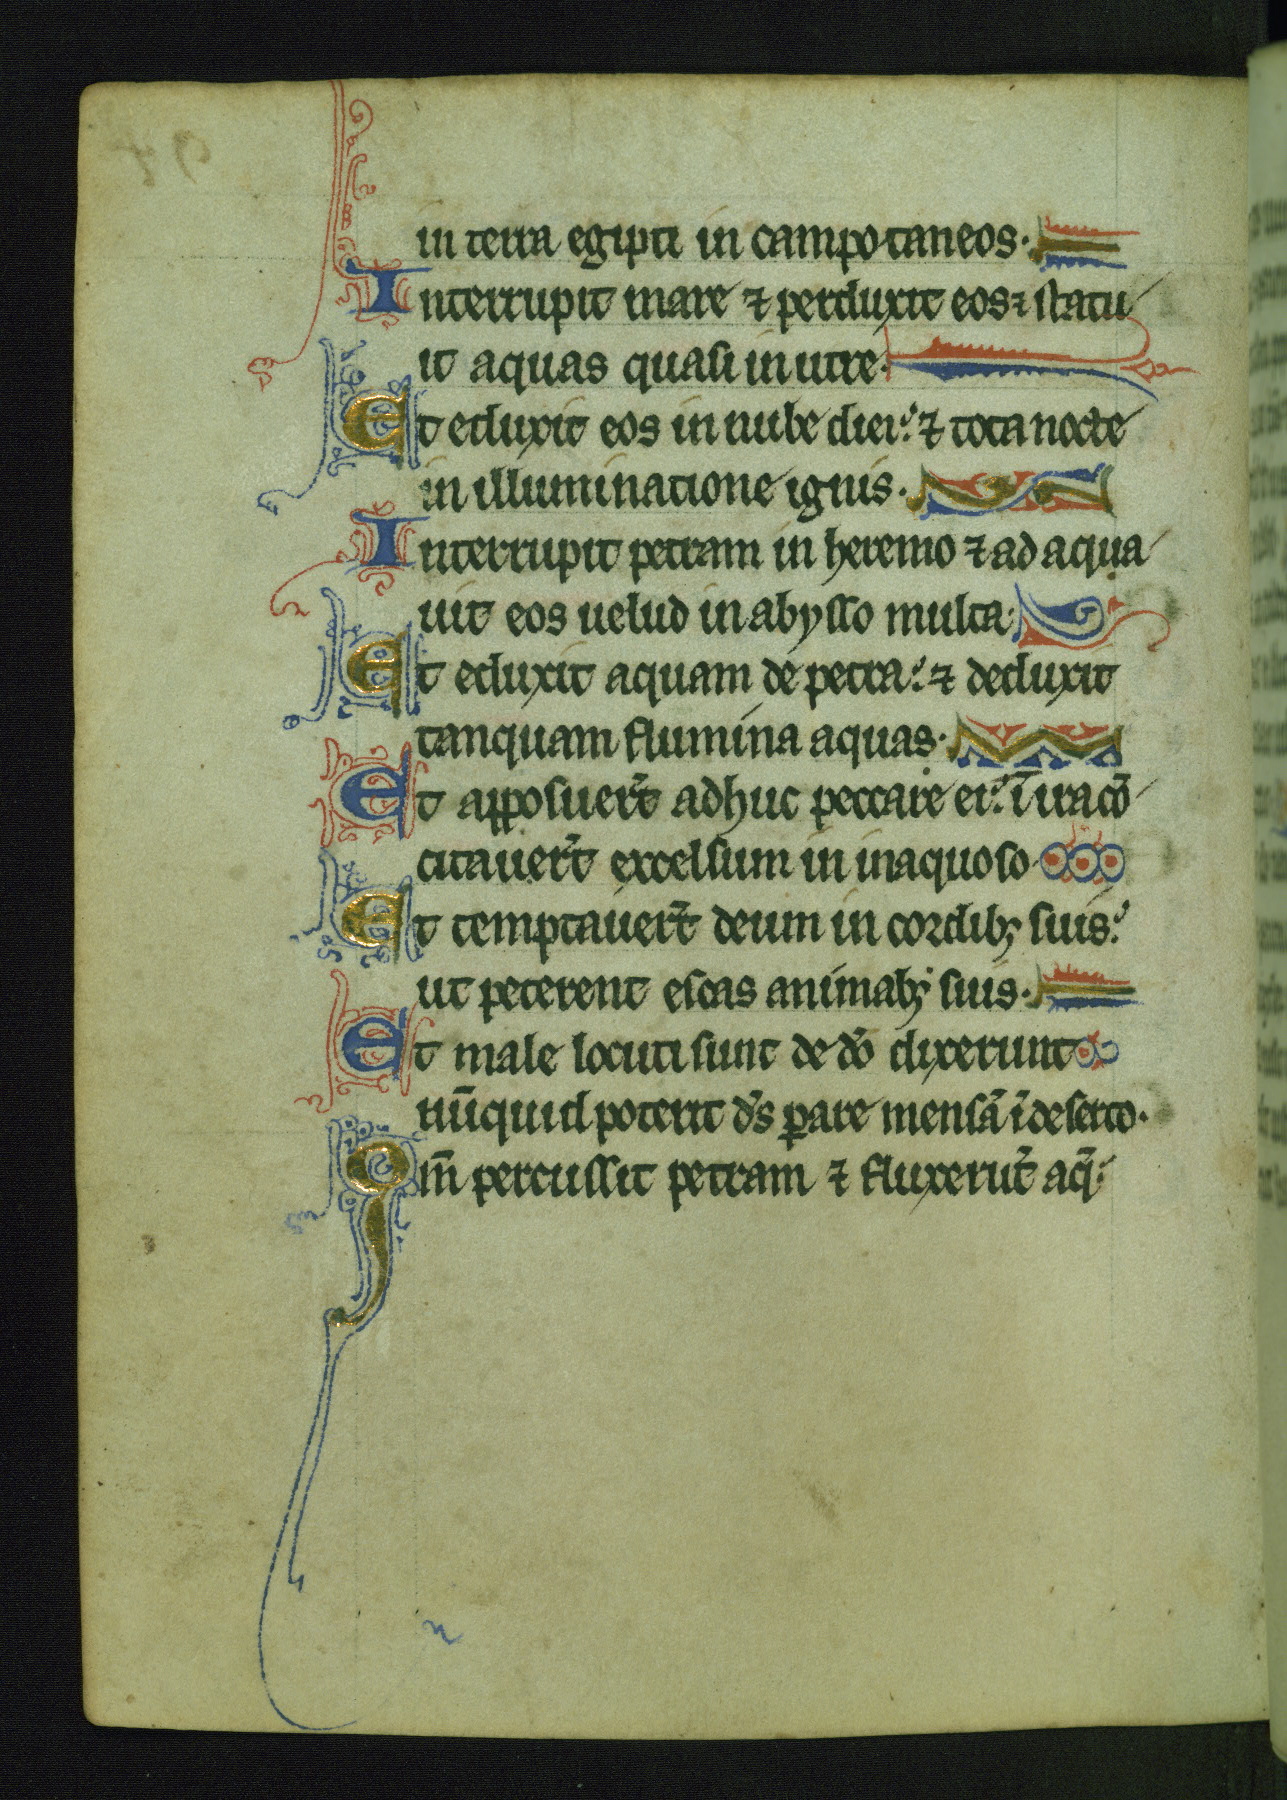 in terra egipti in campo taneos·
Interrupit mare ⁊ perduxit eos ⁊ statu
it aquas quasi in utre·
Et eduxit eos in nube diei: ⁊ tota nocte
in illuminatione ignis·
Interrupit petram in heremo ⁊ ad aqua
uit eos uelud in abysso multa·
Et eduxit aquam de petra: ⁊ deduxit
tanquam flumina aquas·
Et apposuer̃t adhuc peccare ei: ĩ ira cõ
citauer̃t excelsum in inaquoso·
Et temptauer̃t deum in cordibꝫ suis:
ut peterent escas animabꝫ suis·
Et male locuti sunt de dõ dixerunt
nũquid poterit d̃s ꝑare mensã ĩ deserto·
Qm̃ percussit petram ⁊ fluxerũt aq̃·